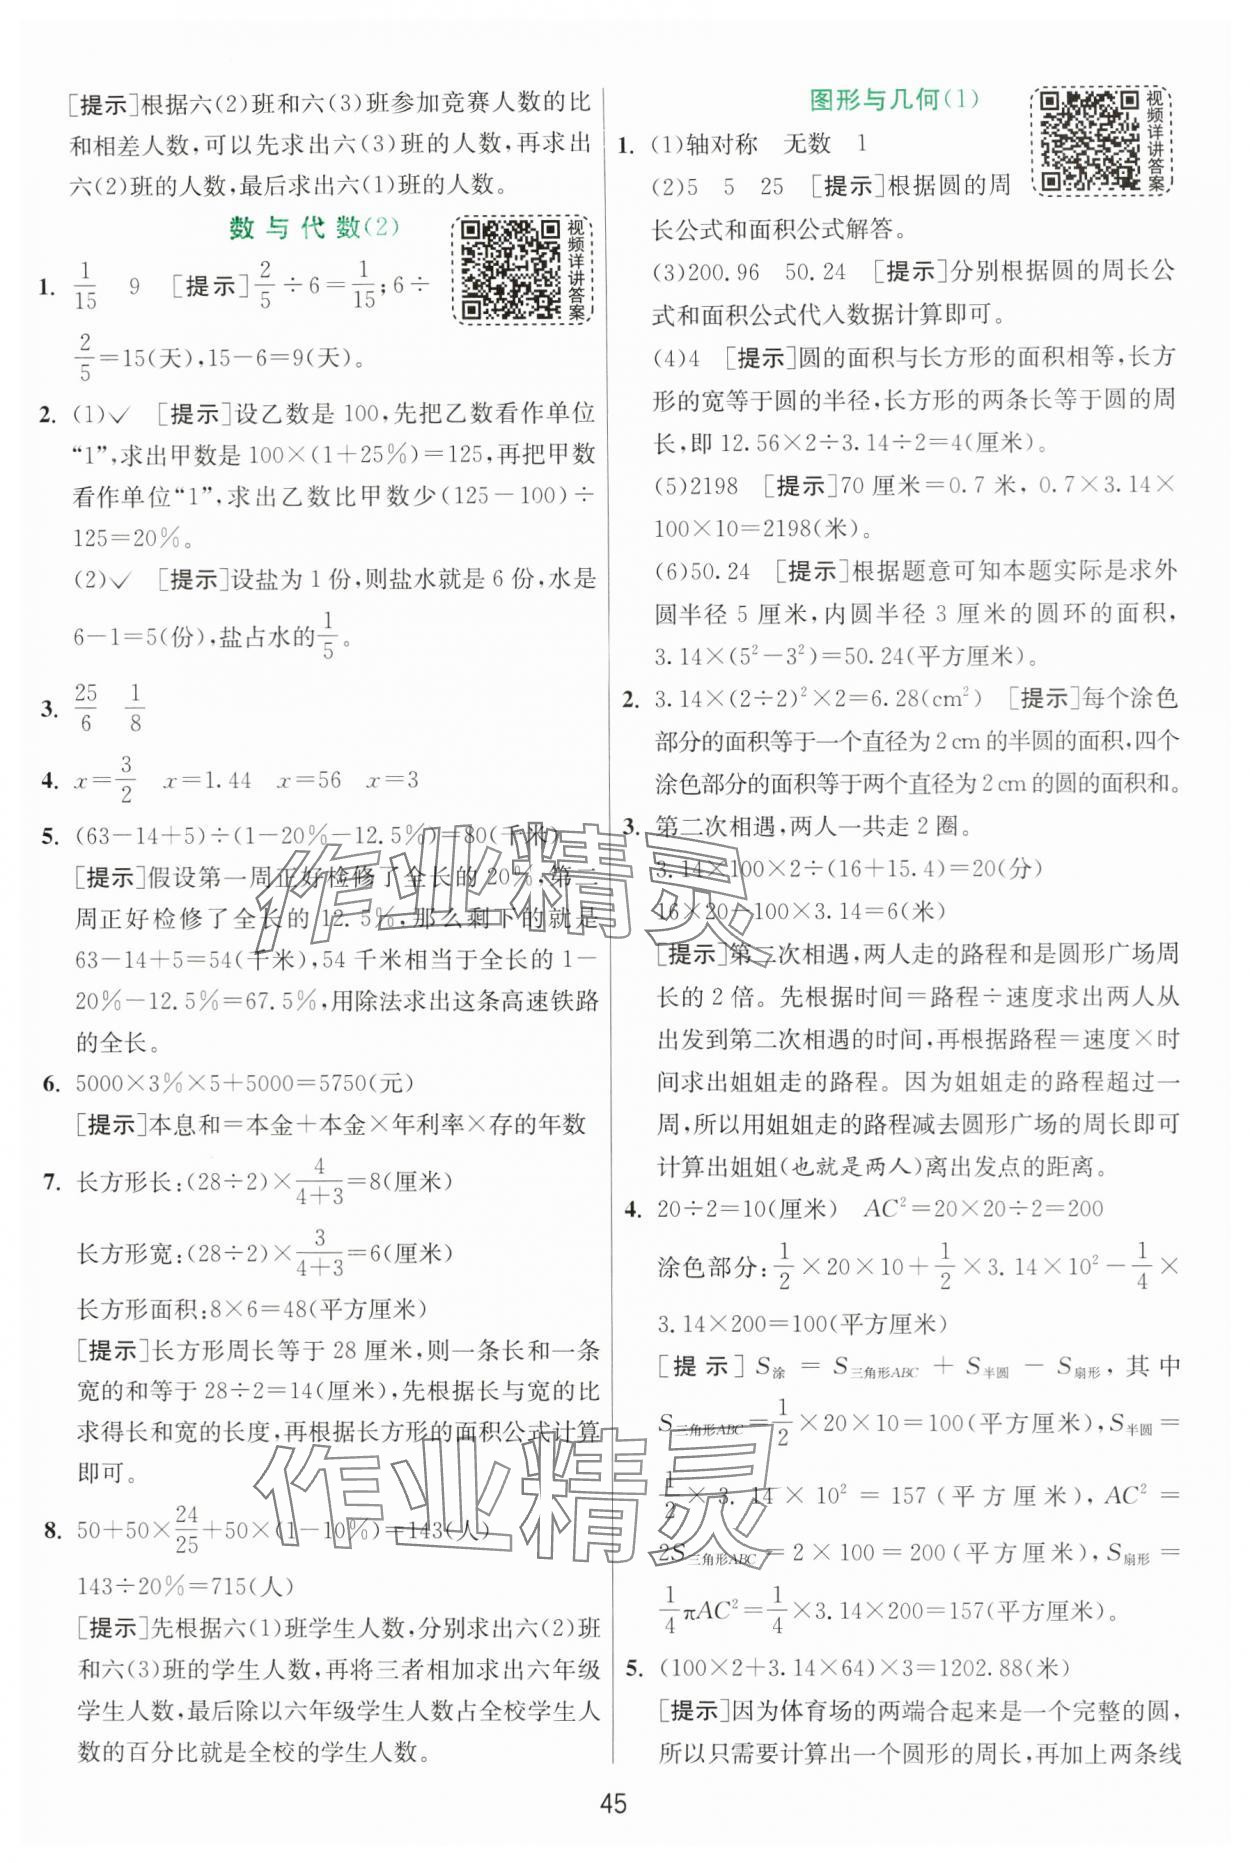 [提示]根据六(2)班和六(3)班参加竞赛人数的比
和相差人数,可以先求出六(3)班的人数,再求出
六(2)班的人数,最后求出六(1)班的人数。
数与代数(2)
视频详讲答案
1. 1/15 9 [提示]2/5÷6=1/15;6÷
2/5=15(天),15-6=9(天)。
2. (1)✓ [提示]设乙数是 100,先把乙数看作单位
“1”,求出甲数是 100×(1+25%)=125,再把甲数
看作单位“1”,求出乙数比甲数少(125-100)÷
125=20%。
(2)✓ [提示]设盐为 1 份,则盐水就是 6 份,水是
6-1=5(份),盐占水的1/5。
3. 25/6 1/8
4. x=3/2 x=1.44 x=56 x=3
5. (63-14+5)÷(1-20%-12.5%)=80(千米)
[提示]假设第一周正好检修了全长的 20%,第二
周正好检修了全长的 12.5%,那么剩下的就是
63-14+5=54(千米),54 千米相当于全长的 1-
20%-12.5%=67.5%,用除法求出这条高速铁路
的全长。
6. 5000×3%×5+5000=5750(元)
[提示]本息和=本金+本金×年利率×存的年数
7. 长方形长:(28÷2)×4/(4+3)=8(厘米)
长方形宽:(28÷2)×3/(4+3)=6(厘米)
长方形面积:8×6=48(平方厘米)
[提示]长方形周长等于 28 厘米,则一条长和一条
宽的和等于 28÷2=14(厘米),先根据长与宽的比
求得长和宽的长度,再根据长方形的面积公式计算
即可。
8. 50+50×24/25+50×(1-10%)=143(人)
143÷20%=715(人)
[提示]先根据六(1)班学生人数,分别求出六(2)班
和六(3)班的学生人数,再将三者相加求出六年级
学生人数,最后除以六年级学生人数占全校学生人
数的百分比就是全校的学生人数。
图形与几何(1)
视频详讲答案
1. (1)轴对称 无数 1
(2)5 5 25 [提示]根据圆的周
长公式和面积公式解答。
(3)200.96 50.24 [提示]分别根据圆的周长公
式和面积公式代入数据计算即可。
(4)4 [提示]圆的面积与长方形的面积相等,长方
形的宽等于圆的半径,长方形的两条长等于圆的周
长,即 12.56×2÷3.14÷2=4(厘米)。
(5)2198 [提示]70 厘米=0.7 米, 0.7×3.14×
100×10=2198(米)。
(6)50.24 [提示]根据题意可知本题实际是求外
圆半径 5 厘米,内圆半径 3 厘米的圆环的面积,
3.14×(5²-3²)=50.24(平方厘米)。
2. 3.14×(2÷2)²×2=6.28(cm²) [提示]每个涂色
部分的面积等于一个直径为 2 cm 的半圆的面积,四个
涂色部分的面积等于两个直径为 2 cm 的圆的面积和。
3. 第二次相遇,两人一共走 2 圈。
3.14×100×2÷(16+15.4)=20(分)
16×20-100×3.14=6(米)
[提示]第二次相遇,两人走的路程和是圆形广场周
长的 2 倍。先根据时间=路程÷速度求出两人从
出发到第二次相遇的时间,再根据路程=速度×时
间求出姐姐走的路程。因为姐姐走的路程超过一
周,所以用姐姐走的路程减去圆形广场的周长即可
计算出姐姐(也就是两人)离出发点的距离。
4. 20÷2=10(厘米) AC²=20×20÷2=200
涂色部分:1/2×20×10+1/2×3.14×10²-1/4×
3.14×200=100(平方厘米)
[提示] S涂 = S三角形ABC + S半圆 - S扇形,其中
S三角形ABC=1/2×20×10=100(平方厘米),S半圆=
1/2×3.14×10²=157(平方厘米),AC²=
2S三角形ABC=2×100=200(平方厘米),S扇形=
1/4πAC²=1/4×3.14×200=157(平方厘米)。
5. (100×2+3.14×64)×3=1202.88(米)
[提示]因为体育场的两端合起来是一个完整的圆,
所以只需要计算出一个圆形的周长,再加上两条线
45
作业精灵
作业精灵